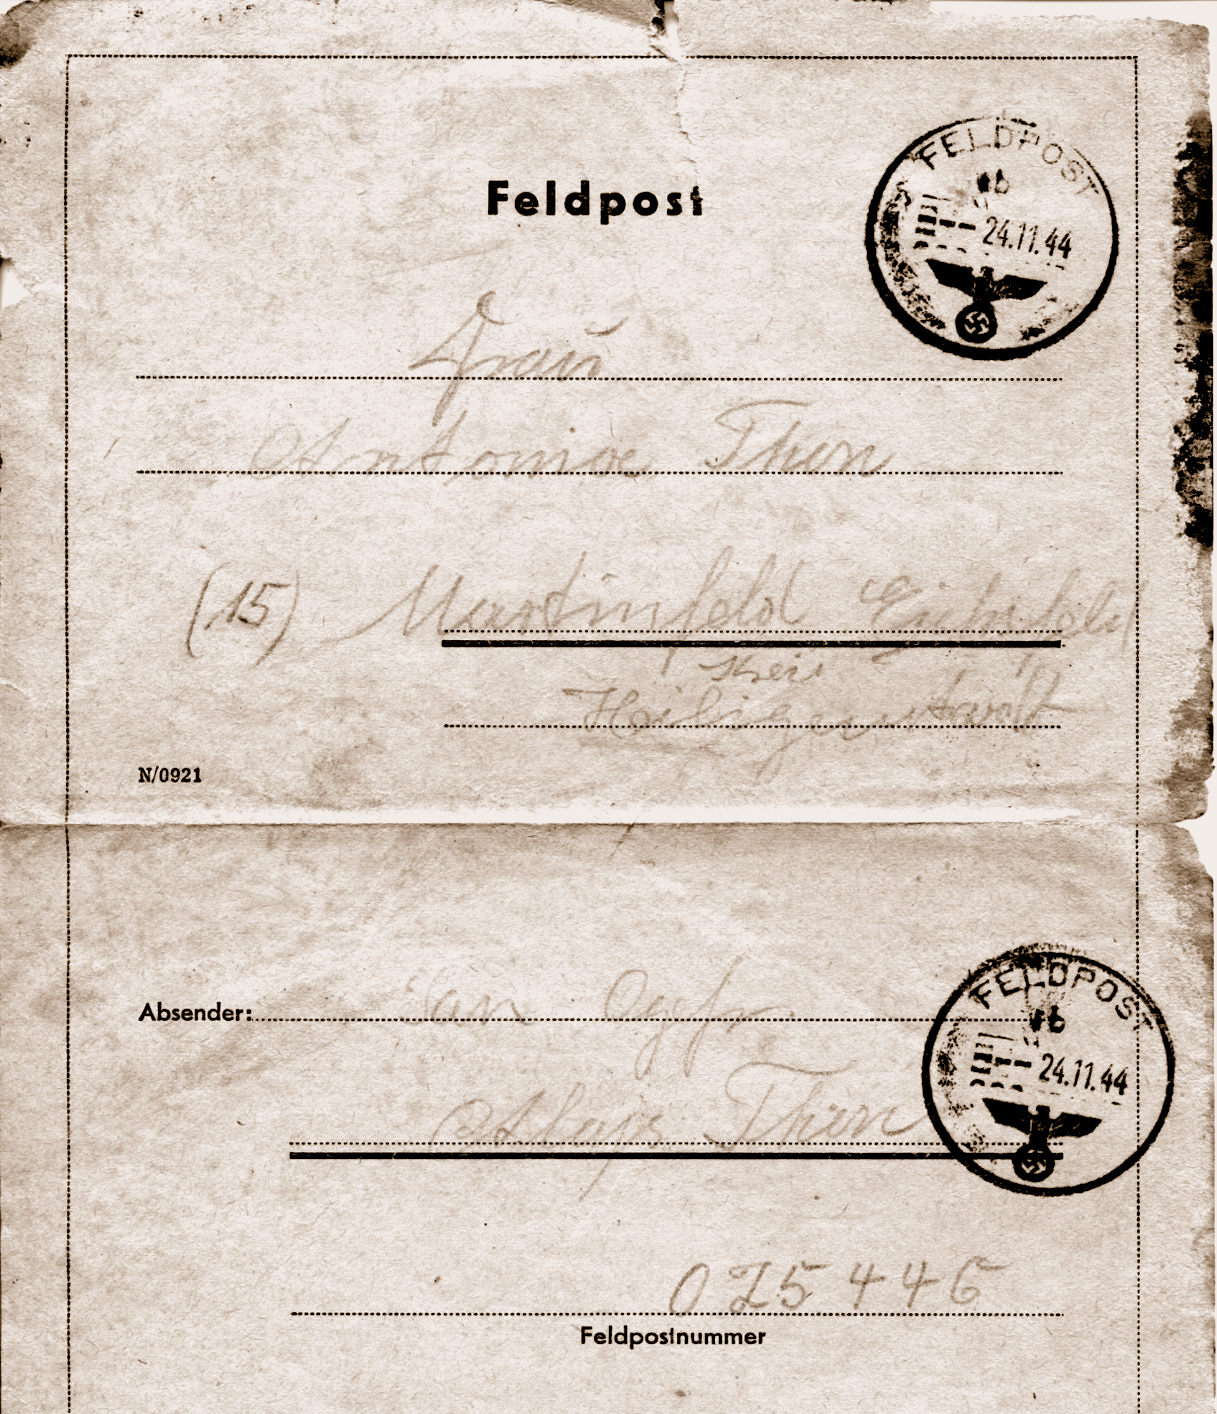 Feldpost
FELDPOST
b
24.11.44
Frau
Antonie Thon
(15) Martinfeld Eichsfeld
Kreis
Heiligenstadt
N/0921
FELDPOST
b
24.11.44
Absender: San Ogfr.
Thon
025446
Feldpostnummer